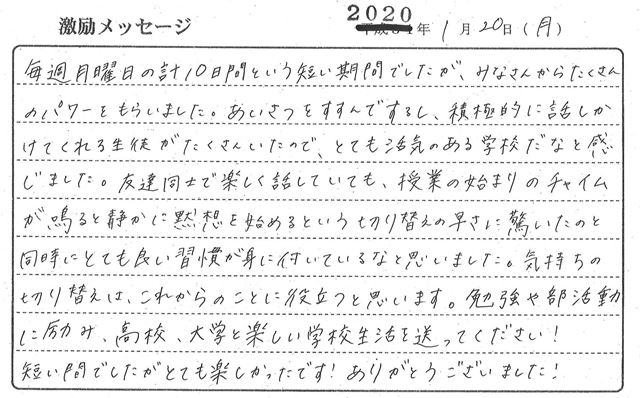 激励メッセージ
2020年 1月 20日(月)
毎週月曜日の計10日間という短い期間でしたが、みなさんからたくさん
のパワーをもらいました。あいさつをすすんでするし、積極的に話しか
けてくれる生徒がたくさんいたので、とても活気のある学校だなと感
じました。友達同士で楽しく話していても、授業の始まりのチャイム
が鳴ると静かに黙想を始めるという切り替えの早さに驚いたのと
同時にとても良い習慣が身に付いているなと思いました。気持ちの
切り替えは、これからのことに役立つと思います。勉強や部活動
に励み、高校、大学と楽しい学校生活を送ってください!
短い間でしたがとても楽しかったです!ありがとうございました!